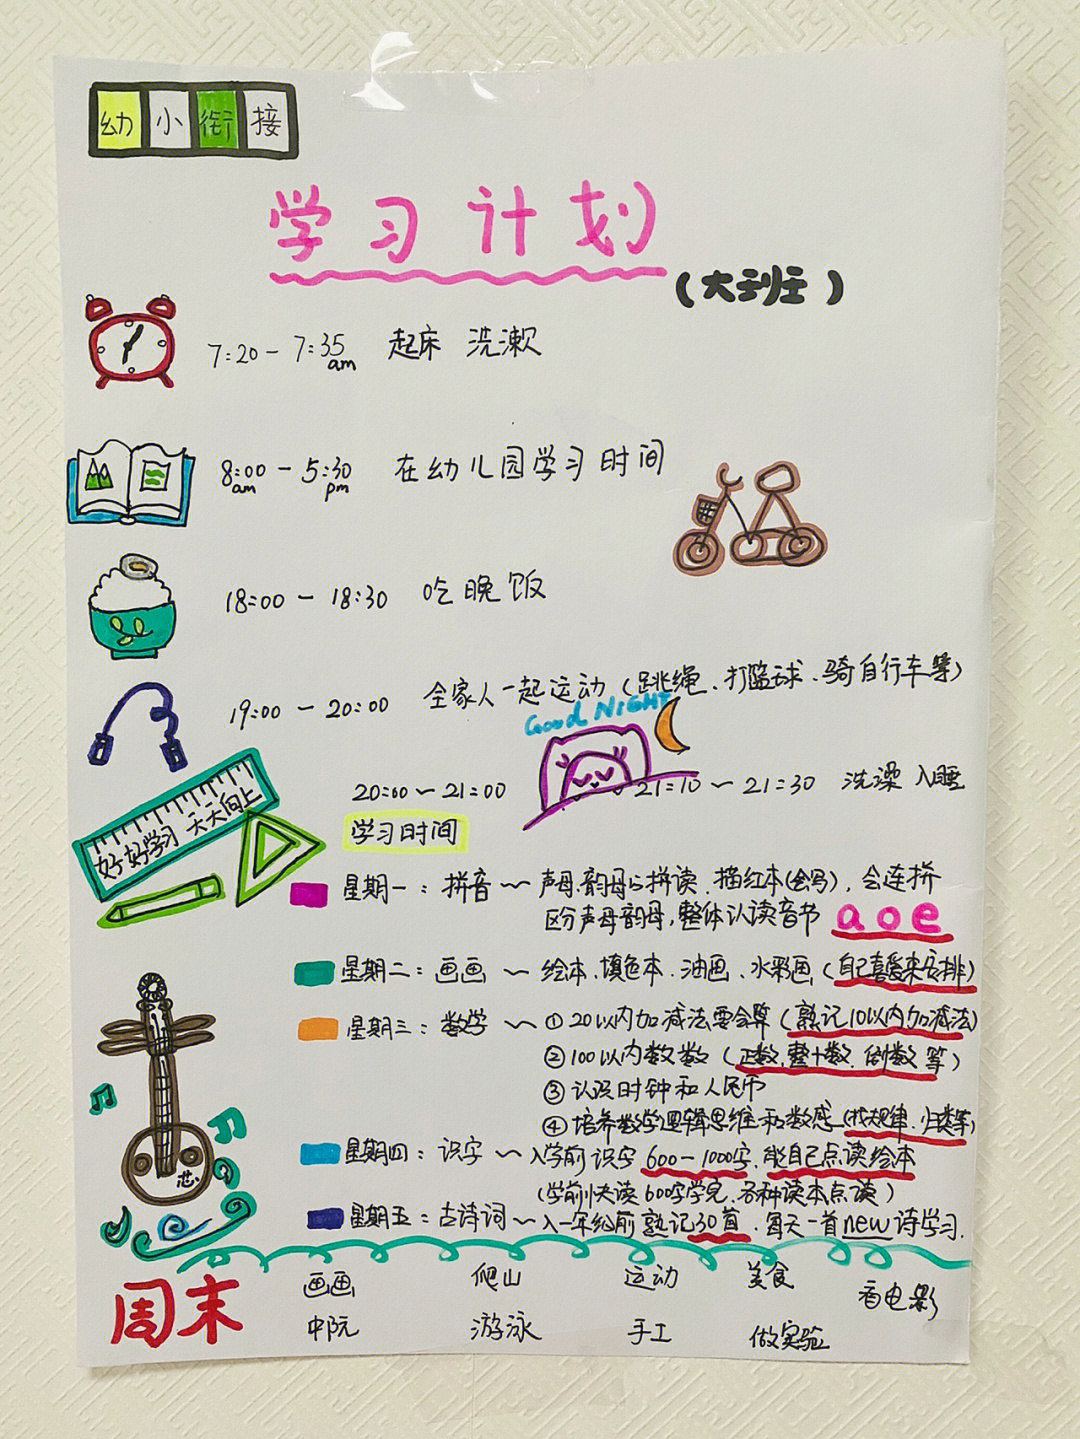 幼小衔接
学习计划
(大班)
7:20-7:35 am 起床 洗漱
8:00 am - 5:30 pm 在幼儿园学习时间
18:00-18:30 吃晚饭
19:00-20:00 全家人一起运动(跳绳、打篮球、骑自行车等)
GOOD NIGHT
20:00~21:00
21:10~21:30 洗澡 入睡
好好学习 天天向上
学习时间
星期一:拼音~声母、韵母、拼读、描红本(会写),会连拼
区分声母韵母,整体认读音节 a o e
星期二:画画~绘本、填色本、油画、水彩画(自己喜爱来安排)
星期三:数学~①20以内加减法要会算(熟记10以内加减法)
②100以内数数(正数、整十数、倒数等)
③认识时钟和人民币
④培养数学逻辑思维和数感(找规律、归类等)
星期四:识字~入学前识字600-1000字,能自己点读绘本
(学前快读600字学完,各种读本点读)
星期五:古诗词~入一年级前熟记30首,每天一首new诗学习.
芯
周末
画画 爬山 运动 美食 看电影
中阮 游泳 手工 做实验